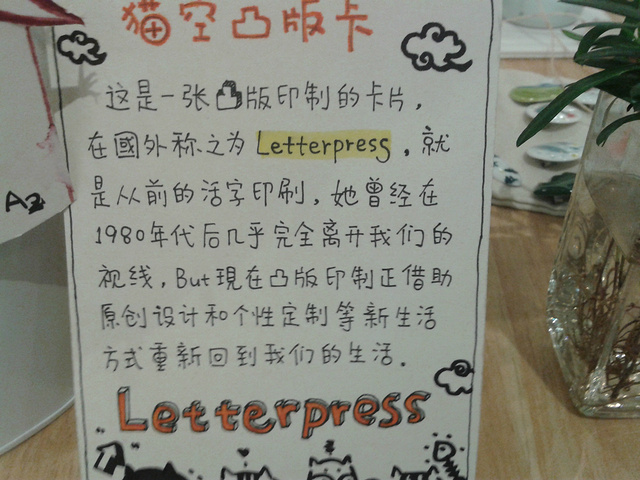 猫空凸版卡
这是一张凸版印制的卡片，
在國外称之为 Letterpress，就
是从前的活字印刷，她曾经在
1980年代后几乎完全离开我们的
视线，But現在凸版印制正借助
原创设计和个性定制等新生活
方式重新回到我们的生活．
Letterpress
A2